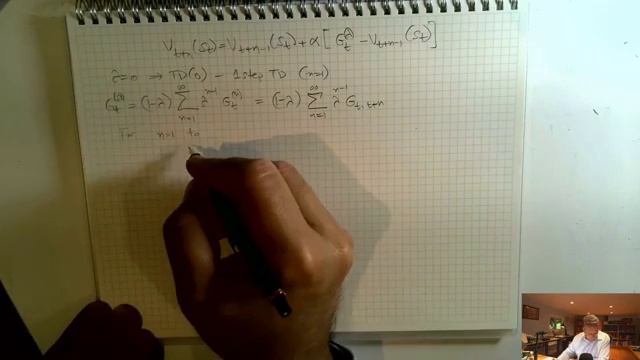 V_{t+n}(S_t) = V_{t+n-1}(S_t) + α [ G_t^{(λ)} - V_{t+n-1}(S_t) ]
λ=0 ⇒ TD(0) - 1 step TD (n=1)
G_t^{(λ)} = (1-λ) ∑_{n=1}^{∞} λ^{n-1} G_t^{(n)} = (1-λ) ∑_{n=1}^{∞} λ^{n-1} G_{t,t+n}
For n=1 to